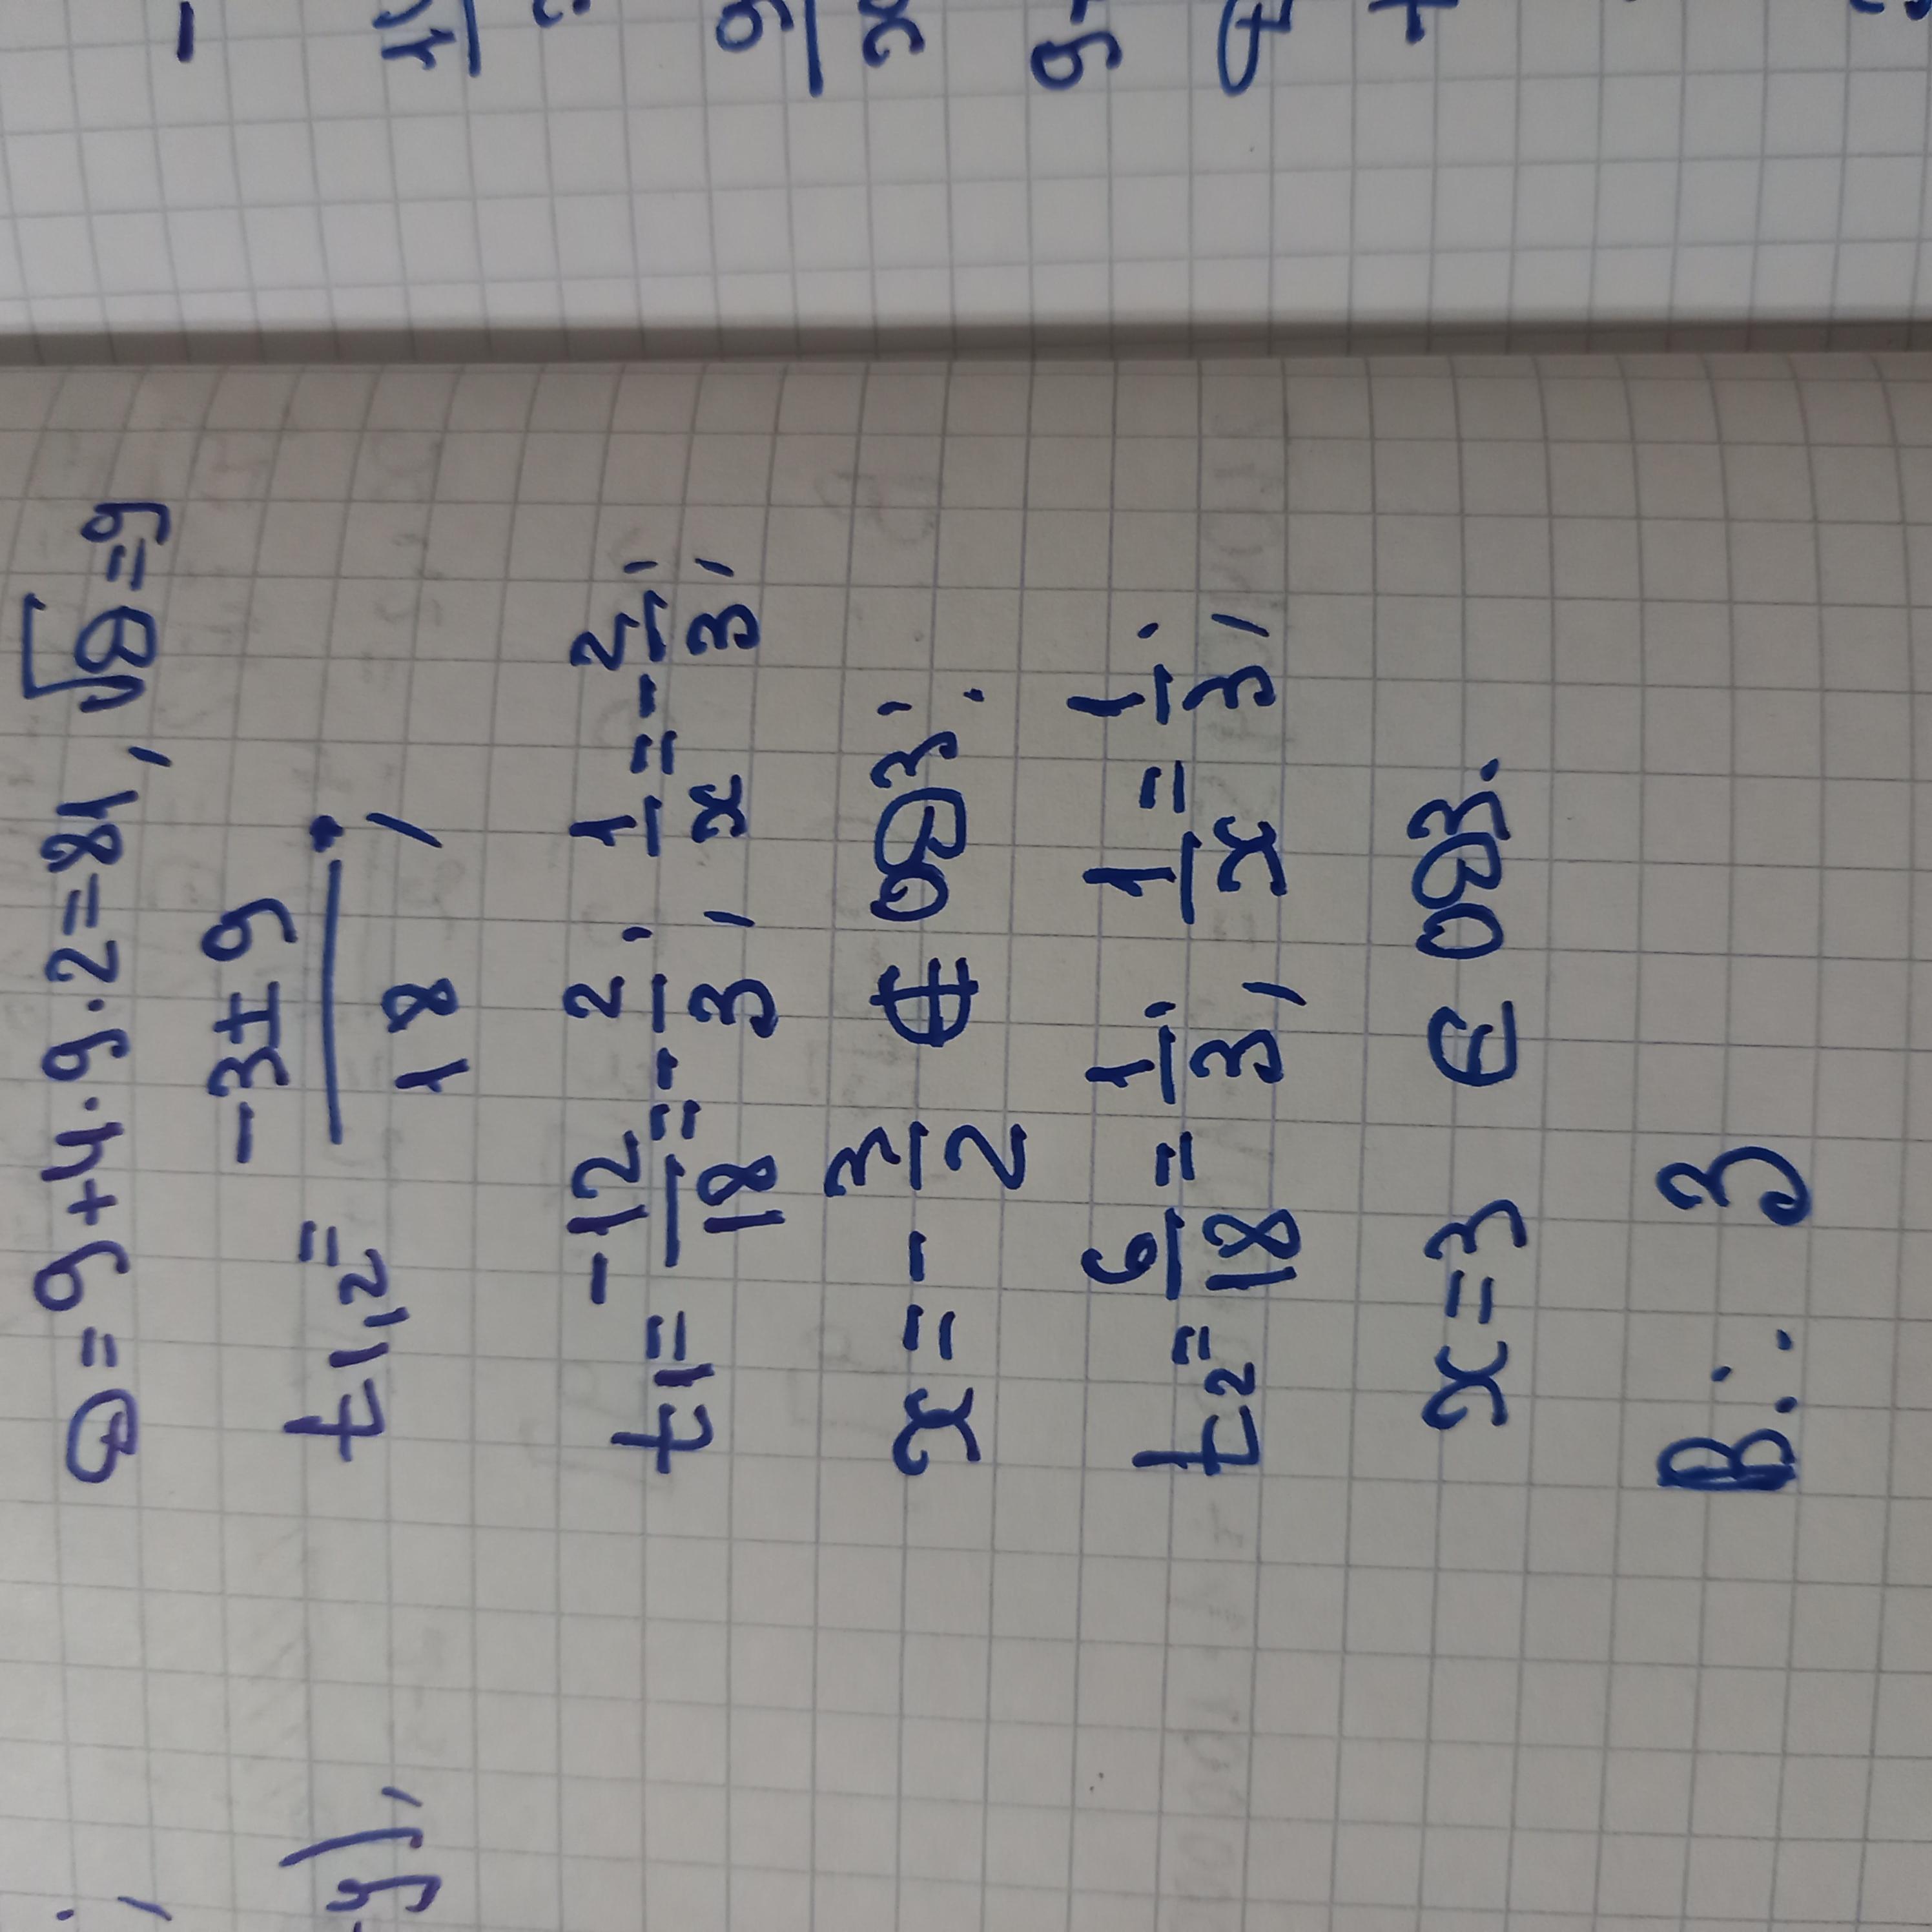 D = 9 + 4 · 9 · 2 = 81, √D = 9
t₁,₂ = (-3 ± 9) / 18;
t₁ = -12/18 = -2/3; 1/x = -2/3;
x = -3/2 ∉ ОДЗ;
t₂ = 6/18 = 1/3; 1/x = 1/3;
x = 3 ∈ ОДЗ.
В.: 3